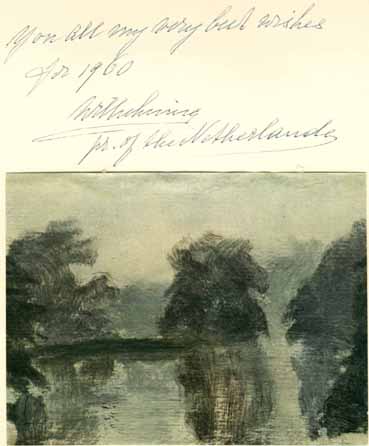 You all my very best wishes
for 1960
Wilhelmina
pr. of the Netherlands